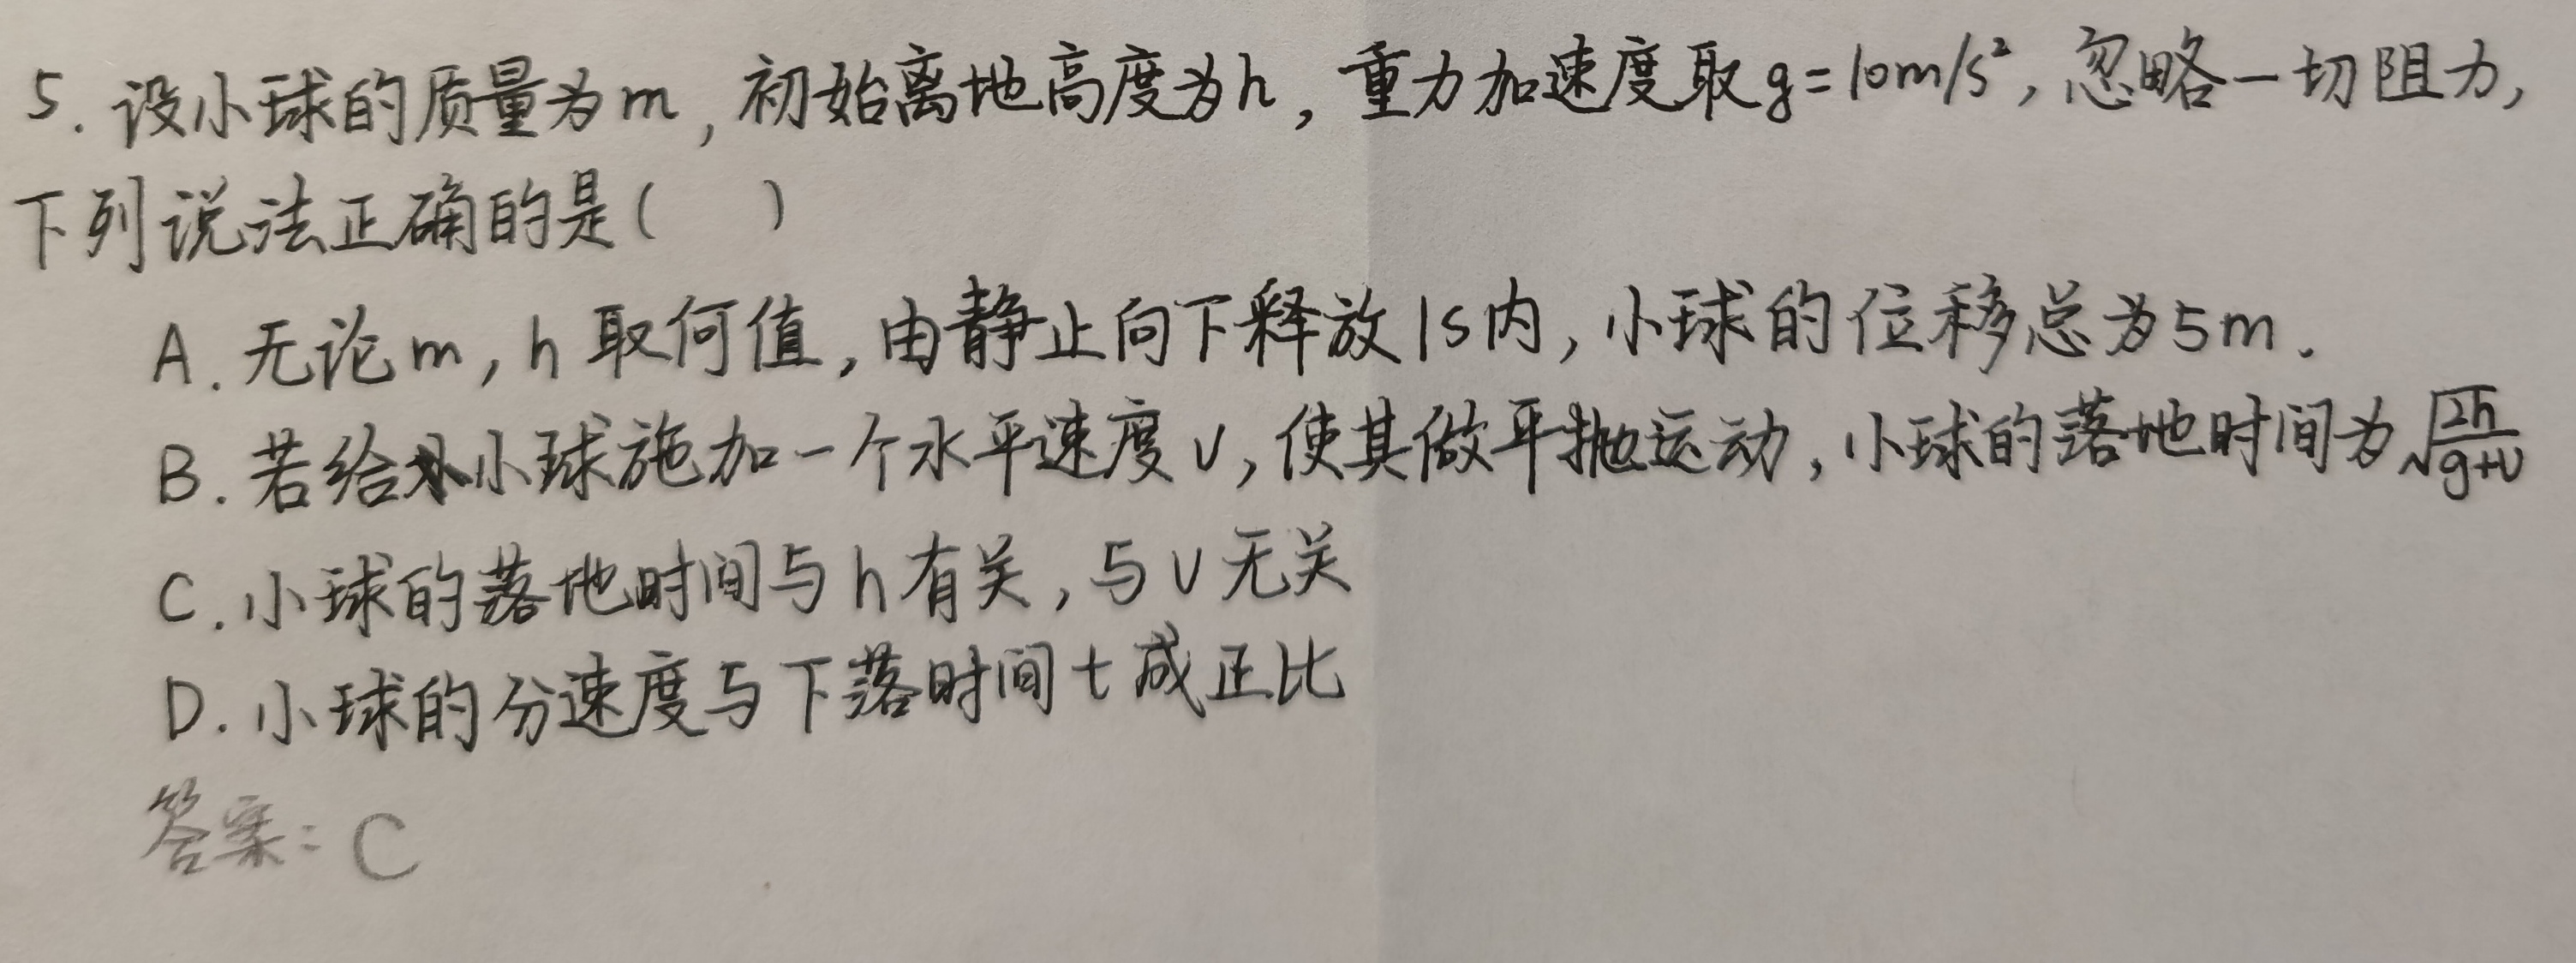 5. 设小球的质量为m,初始离地高度为h,重力加速度取g=10m/s²,忽略一切阻力,
下列说法正确的是( )
A. 无论m,h取何值,由静止向下释放1s内,小球的位移总为5m.
B. 若给小球施加一个水平速度v,使其做平抛运动,小球的落地时间为√(2h/(g+v))
C. 小球的落地时间与h有关,与v无关
D. 小球的分速度与下落时间t成正比
答案:C